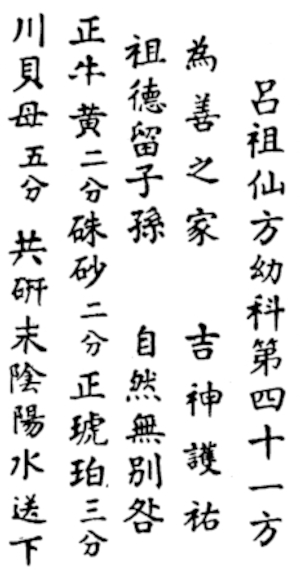 呂祖仙方幼科第四十一方
為善之家　吉神護祐
祖德留子孫　自然無別咎
正牛黃二分硃砂二分正琥珀三分
川貝母五分　共研末陰陽水送下